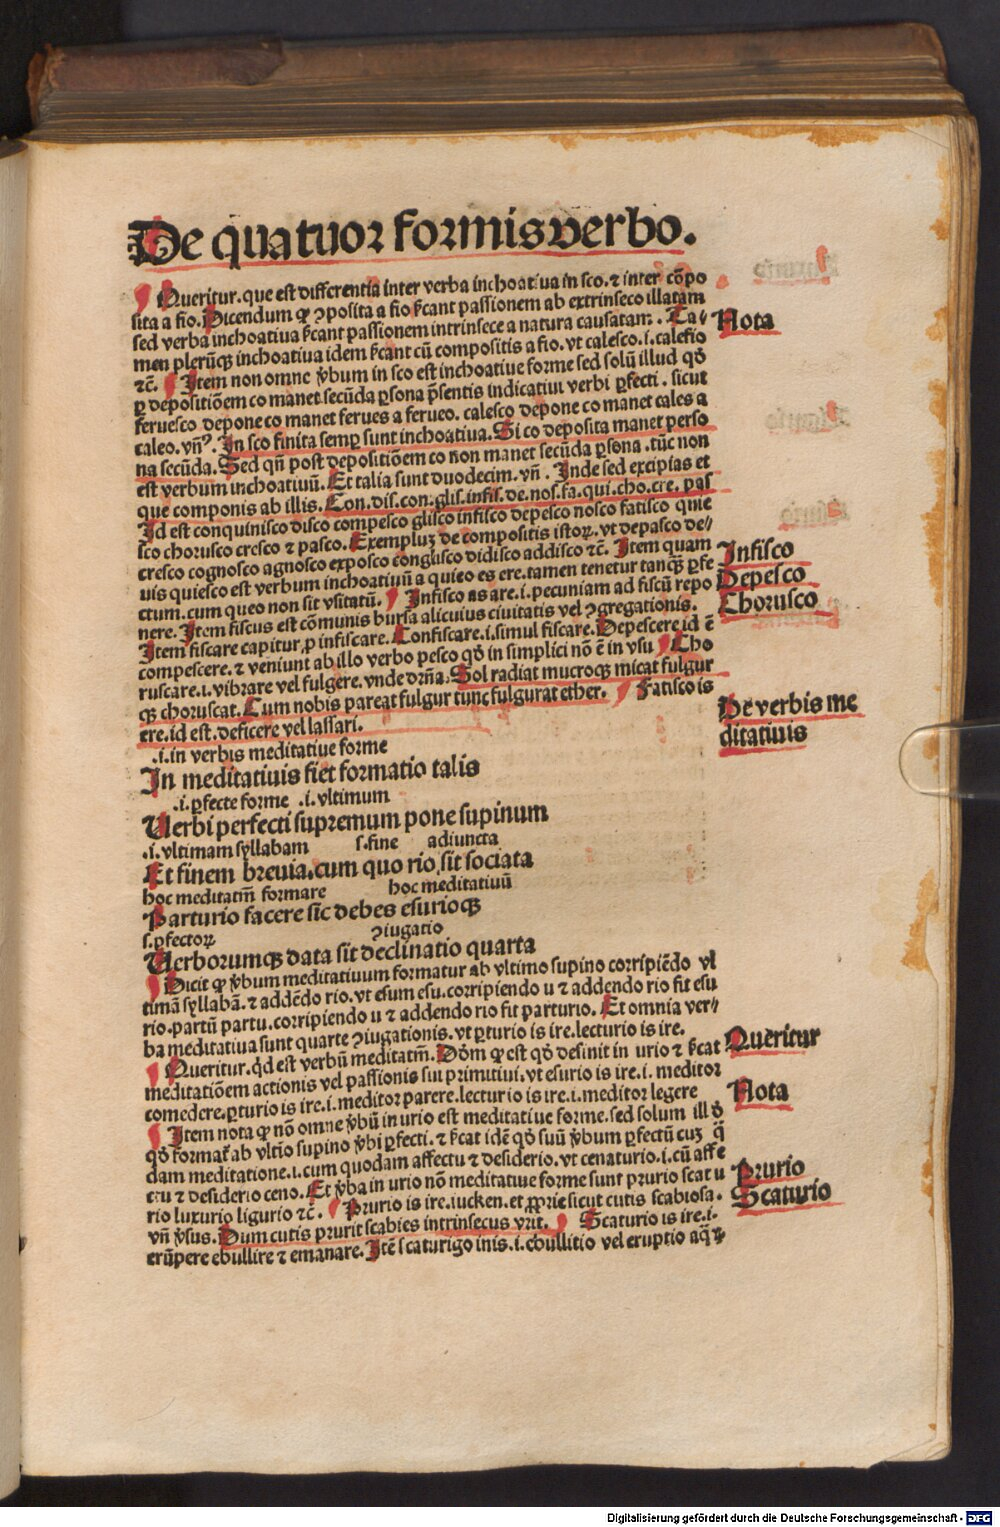 De quatuor formis verbo.
Queritur. que est differentia inter verba inchoatiua in sco. ⁊ inter cōpo
sita a fio. Dicendum ꝙ ꝯposita a fio ſ̄cant passionem ab extrinseco illatam
sed verba inchoatiua ſ̄cant passionem intrinsece a natura causatam. Ta⸗
men plerūqꝫ inchoatiua idem ſ̄cant cū compositis a fio. vt calesco .i. calefio
⁊c̄. Item non omne v̄bum in sco est inchoatiue forme sed solū illud qd̄
ꝑ depositiōem co manet secūda ꝑsona p̄sentis indicatiui verbi ꝑfecti. sicut
feruesco depone co manet ferues a ferueo. calesco depone co manet cales a
caleo. vn̄ꝰ. In sco finita semꝑ sunt inchoatiua. Si co deposita manet perso
na secūda. Sed qn̄ post depositiōem co non manet secūda ꝑsona. tūc non
est verbum inchoatiuū. Et talia sunt duodecim. vn̄. Inde sed excipias et
que componis ab illis. Con. dis. con. glis. infis. de. nos. fa. qui. cho. cre. pas
Id est conquinisco disco compesco glisco infisco depesco nosco fatisco quie
sco chorusco cresco ⁊ pasco. Exempluꝫ de compositis istoꝝ. vt depasco de⸗
cresco cognosco agnosco exposco conglusco didisco addisco ⁊c̄. Item quam
uis quiesco est verbum inchoatiuū a quieo es ere. tamen tenetur tanqꝫ ꝑfe
ctum. cum queo non sit vsitatū. Infisco as are .i. pecuniam ad fiscū repo
nere. Item fiscus est cōmunis bursa alicuius ciuitatis vel ꝯgregationis.
Item fiscare capitur, ꝓ infiscare. Confiscare .i. simul fiscare. Depescere id ē
compescere. ⁊ veniunt ab illo verbo pesco qd̄ in simplici nō ē in vsu Cho
ruscare .i. vibrare vel fulgere. vnde dr̄na. Sol radiat mucroqꝫ micat fulgur
qꝫ choruscat. Cum nobis pareat fulgur tunc fulgurat ether. Fatisco is
ere. id est. deficere vel lassari.
.i. in verbis meditatiue forme
In meditatiuis fiet formatio talis
.i. ꝑfecte forme .i. vltimum
Uerbi perfecti supremum pone supinum
.i. vltimam syllabam s. fine adiuncta
Et finem breuia. cum quo rio sit sociata
hoc meditatm̄ formare hoc meditatiuū
Parturio facere sic debes esurioqꝫ
s. ꝑfectoꝝ ꝯiugatio
Uerborumqꝫ data sit declinatio quarta
Dicit ꝙ v̄bum meditatiuum formatur ab vltimo supino corripiēdo vl
timā syllabā. ⁊ addēdo rio. vt esum esu. corripiendo u ⁊ addendo rio fit esu
rio. partū partu. corripiendo u ⁊ addendo rio fit parturio. Et omnia ver⸗
ba meditatiua sunt quarte ꝯiugationis. vt ꝑturio is ire. lecturio is ire.
Queritur. qd̄ est verbū meditatm̄. Dōm ꝙ est qd̄ desinit in urio ⁊ ſ̄cat
meditatiōem actionis vel passionis sui primitiui. vt esurio is ire .i. meditor
comedere. ꝑturio is ire .i. meditor parere. lecturio is ire .i. meditor legere
Item nota ꝙ nō omne v̄bū in urio est meditatiue forme. sed solum ill d̄
qd̄ format̄ ab vltīo supino v̄bi ꝑfecti. ⁊ ſ̄cat idē qd̄ suū v̄bum ꝑfectū cuꝫ q̄
dam meditatione .i. cum quodam affectu ⁊ desiderio. vt cenaturio .i. cū affe
ctu ⁊ desiderio ceno. Et v̄ba in urio nō meditatiue forme sunt prurio scatu
rio luxurio ligurio ⁊c̄. Prurio is ire. iucken. et ꝓprie sicut cutis scabiosa.
vn̄ v̄sus. Dum cutis prurit scabies intrinsecus vrit. Scaturio is ire .i.
erūpere ebullire ⁊ emanare. Itē scaturigo inis .i. ebullitio vel eruptio aq̄⸗
Nota
Infisco
Depesco
Chorusco
De verbis me
ditatiuis
Queritur
Nota
Prurio
Scaturio
Digitalisierung gefördert durch die Deutsche Forschungsgemeinschaft - DFG